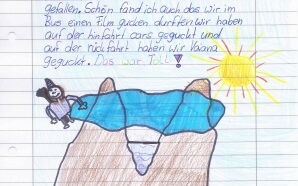 gefallen. Schön fand ich auch das wir im
Bus einen Film gucken durften wir haben
auf der hinfahrt cars geguckt und
auf der rückfahrt haben wir Vaiana
geguckt. Das war Toll!